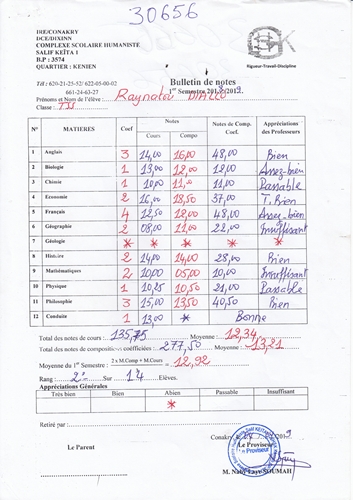 30656
IRE/CONAKRY
DCE/DIXINN
COMPLEXE SCOLAIRE HUMANISTE
SALIF KEÏTA 1
B.P : 3574
QUARTIER : KENIEN
Rigueur-Travail-Discipline
Tél : 620-21-25-52/ 622-05-00-02
661-24-63-27
Bulletin de notes
1er Semestre 2018/2019
Prénoms et Nom de l'élève : DIALLO
Classe : TSS
N° MATIERES Coef Notes Notes de Comp. Coef. Appréciations des Professeurs
Cours Compo
1 Anglais 3 14,00 16,00 48,00 Bien
2 Biologie 1 13,00 12,00 12,00 Assez-bien
3 Chimie 1 10,00 11,00 11,00 Passable
4 Economie 2 16,00 18,50 37,00 T. Bien
5 Français 4 12,50 12,00 48,00 Assez-bien
6 Géographie 2 08,00 11,00 22,00 Insuffisant
7 Géologie * * * * *
8 Histoire 2 14,00 14,00 28,00 Bien
9 Mathématiques 2 10,00 05,00 10,00 Insuffisant
10 Physique 2 10,25 10,50 21,00 Passable
11 Philosophie 3 15,00 13,50 40,50 Bien
12 Conduite 1 13,00 * Bonne
Total des notes de cours : 135,75 Moyenne : 12,34
Total des notes de compositions coefficiées : 277,50 Moyenne : 13,21
Moyenne du 1er Semestre : 2 x M.Comp + M.Cours = 12,92
3
Rang : 2e Sur 14 Elèves.
Appréciations Générales
Très bien Bien Abien Passable Insuffisant
*
Retiré par :
Conakry
Le Parent
Le Proviseur
Le Proviseur
SOUMAH